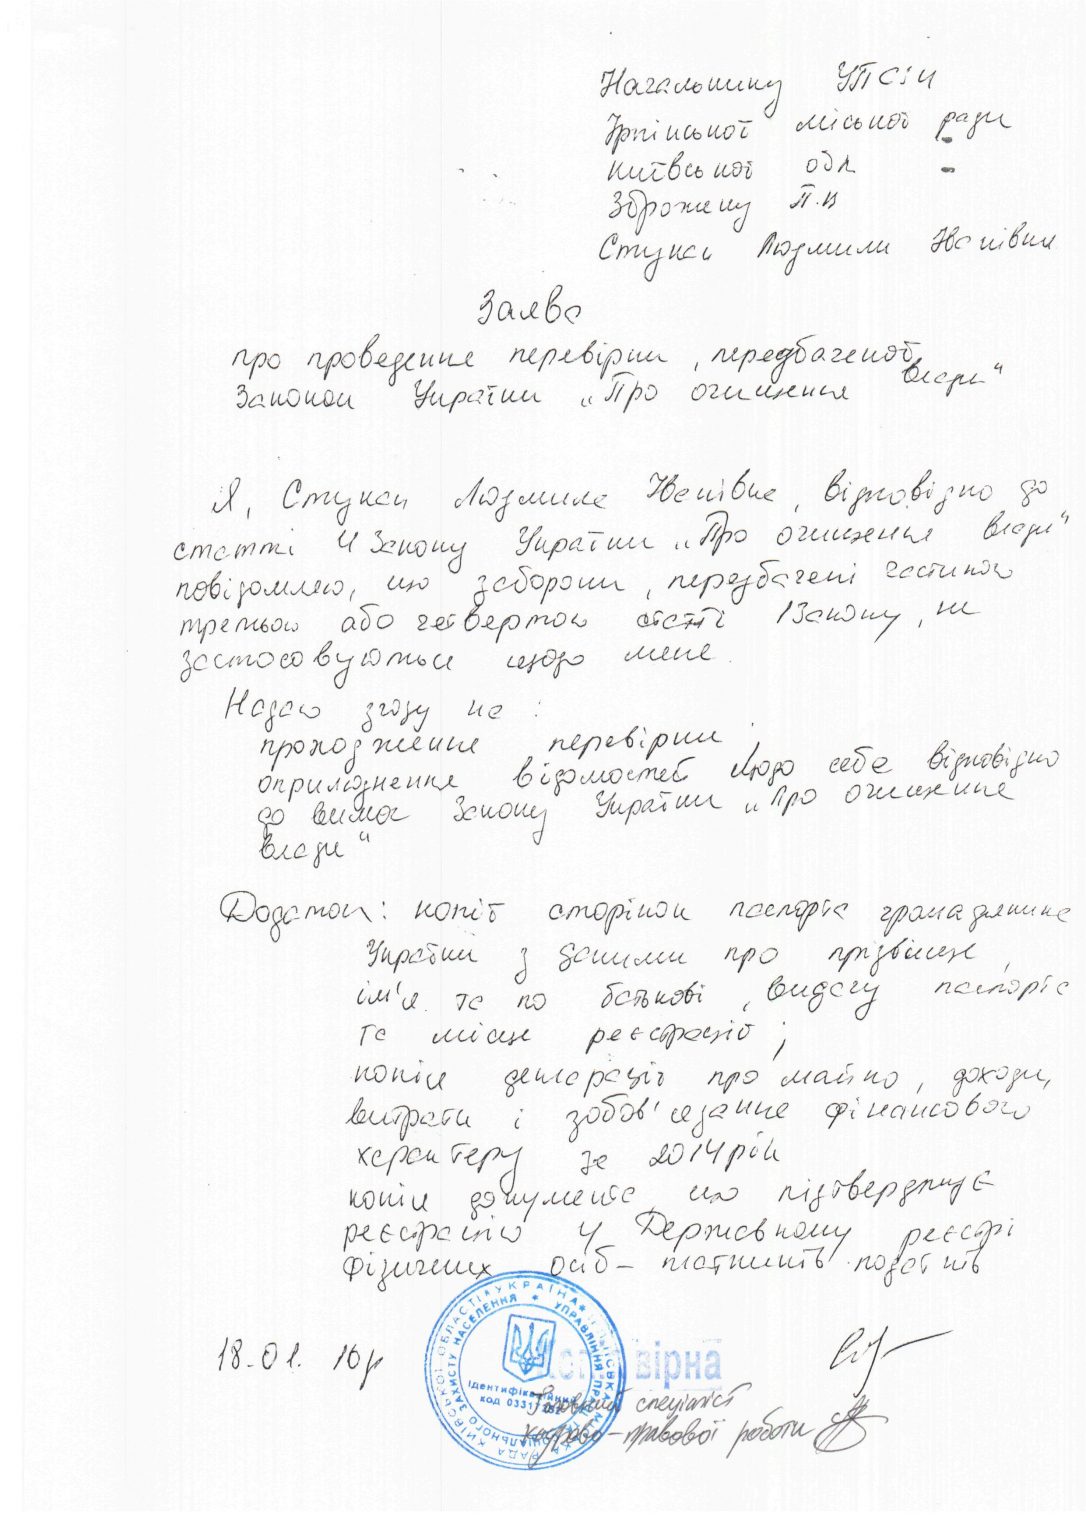 Начальнику УПСЗН
Ірпінської міської ради
Київської обл
Зброжеку П.В
Стукан Людмили Іванівни
Заява
про проведення перевірки, передбаченої
Законом України „Про очищення влади"
Я, Стукан Людмила Іванівна, відповідно до
статті 4 Закону України „Про очищення влади"
повідомляю, що заборони, передбачені частиною
третьою або четвертою статті 1 Закону, не
застосовуються щодо мене.
Надаю згоду на:
проходження перевірки;
оприлюднення відомостей щодо себе відповідно
до вимог Закону України „Про очищення
влади"
Додаток: копії сторінок паспорта громадянина
України з даними про прізвище,
ім'я та по батькові, видачу паспорта
та місце реєстрації;
копія декларації про майно, доходи,
витрати і зобов'язання фінансового
характеру за 2014 рік
копія документа що підтверджує
реєстрацію у Державному реєстрі
фізичних осіб – платників податків
18.01.16р
УКРАЇНА
КИЇВСЬКОЇ ОБЛАСТІ
УПРАВЛІННЯ ПРАЦІ
ЗАХИСТУ НАСЕЛЕННЯ
Ідентифікаційний
код
вірна
Головний спеціаліст
кадрово-правової роботи